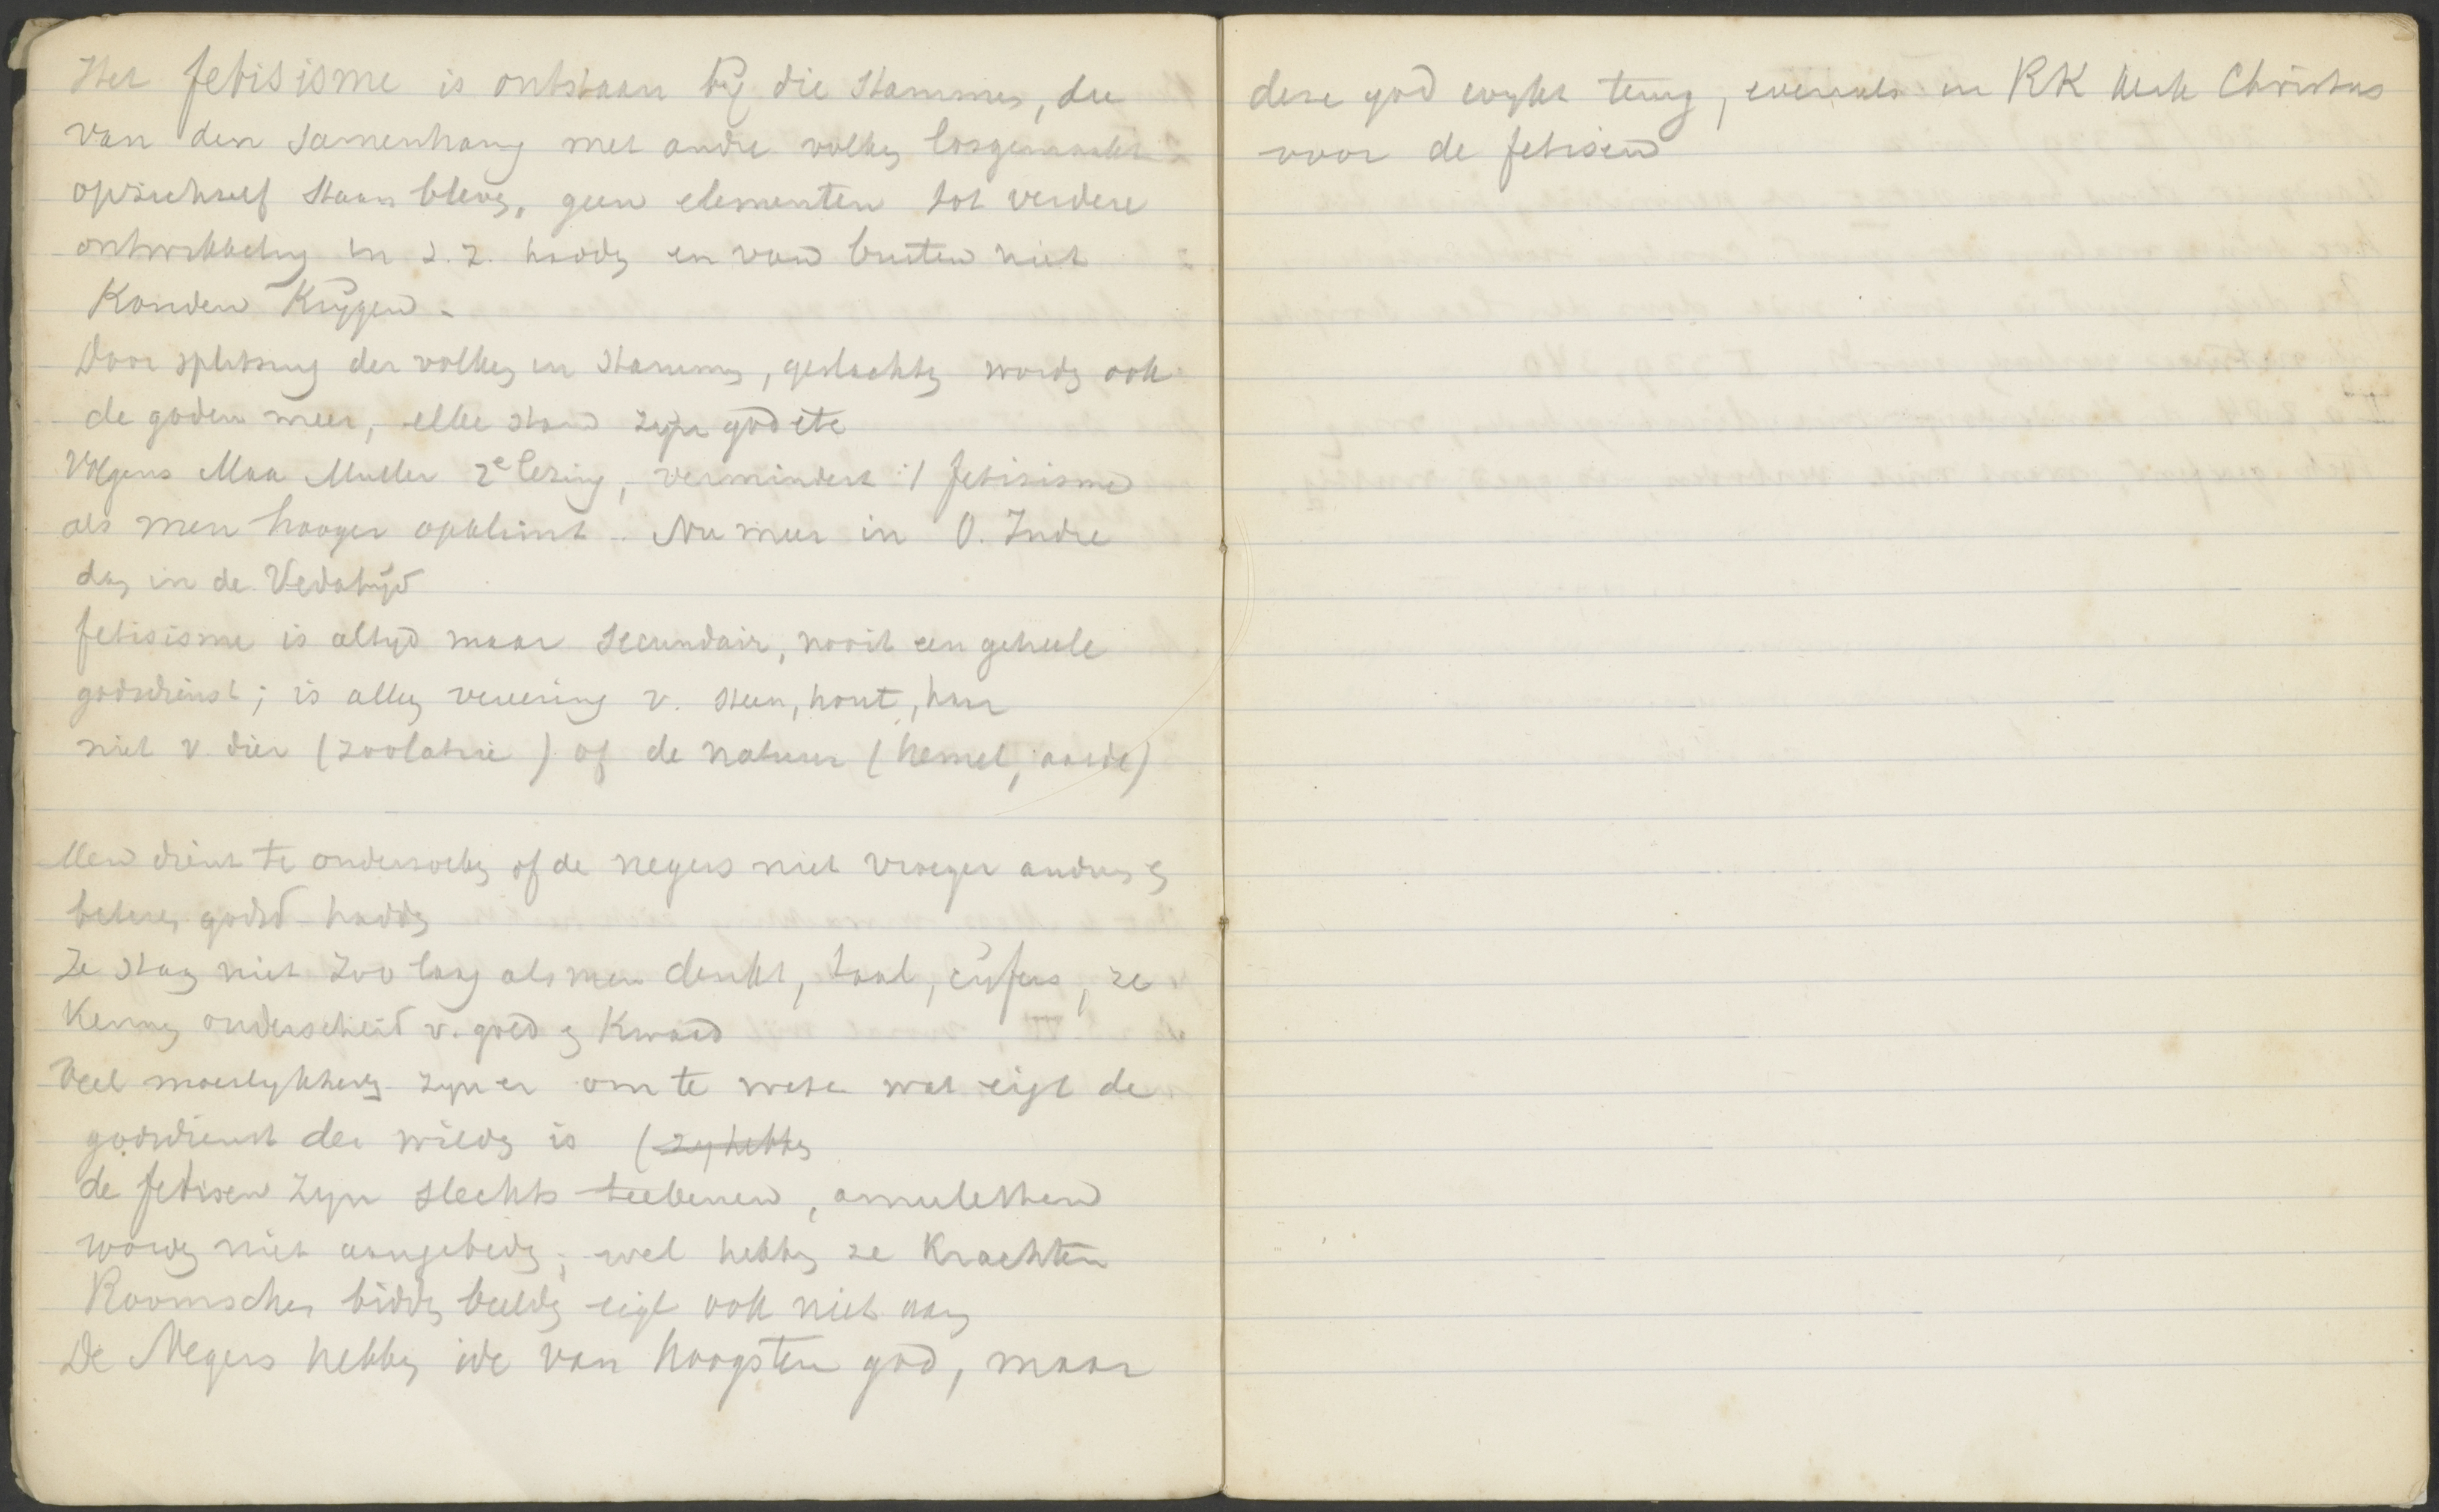 Het fetisisme is ontstaan bij die stammen, die
van den samenhang met andre volken losgemaakt
opzichzelf staan bleven, geen elementen tot verdere
ontwikkeling in z.z. hadden en van buiten niet
Konden Krijgen.
Door splitsing der volken in stammen, geslachten worden ook
de goden meer, elke stam zijn god etc
Volgens Max Muller 2e lezing, vermindert 't fetisisme
als men hooger opklimt. Nu meer in O. Indie
dan in de Vedatijd
fetisisme is altijd maar secundair, nooit een geheele
godsdienst; is alleen vereering v. steen, hout,
niet v. dier (zoolatrie) of de natuur (hemel, aarde)
Men dient te onderzoeken of de negers niet vroeger andren en
beteren godsd hadden
Ze staan niet zoo laag als men denkt, taal, cijfers, ze
Kennen onderscheid v. goed en Kwaad
Veel moeilijkheden zijn er om te weten wat eigl de
godsdienst der wilden is (zij hebben
de fetisen zijn slechts teekenen, amuletten
worden niet aangebeden; wel hebben ze Krachten
Roomschen bidden beelden eigl ook niet aan
De Negers hebben ide van hoogsten god, maar
deze god wijkt terug, evenals in RK Kerk Christus
voor de fetisen